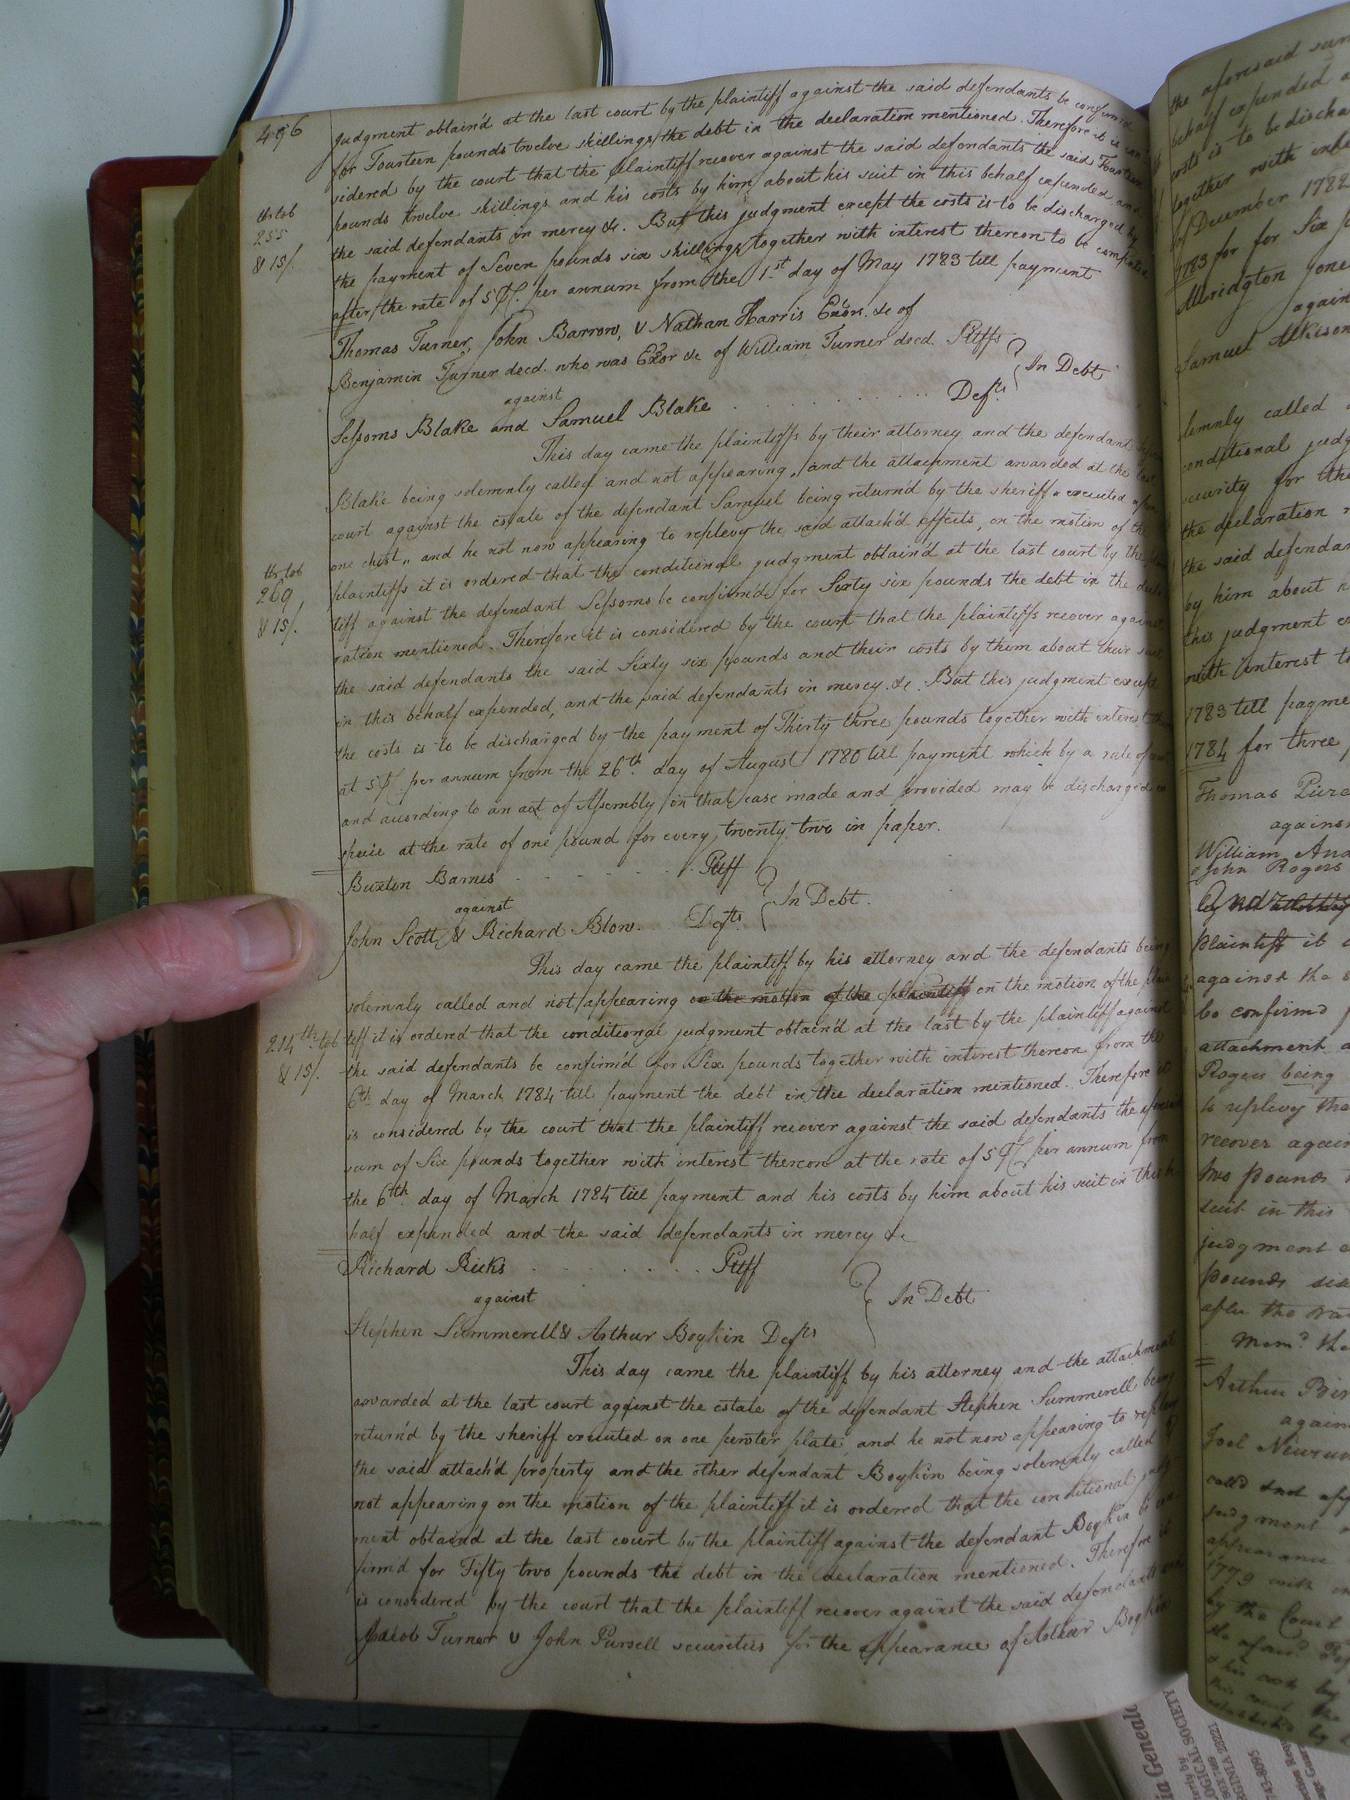 496
judgment obtain'd at the last court by the plaintiff against the said defendants be confirmed
for Fourteen pounds twelve shillings the debt in the declaration mentioned. Therefore it is con
sidered by the court that the plaintiff recover against the said defendants the said Fourteen
pounds twelve shillings and his costs by him about his suit in this behalf expended and
the said defendants in mercy &c. But this judgment except the costs is to be discharged by
the payment of Seven pounds six shillings together with interest thereon to be computed
after the rate of 5 per annum from the 1st day of May 1783 till payment
th tob
255
& 15/.
Thomas Turner, John Barrow, & Nathan Harris Exõr. &c of
Benjamin Turner decd. who was Exõr &c of William Turner decd. Pltffs
against
In Debt
Sessoms Blake and Samuel Blake Defts
This day came the plaintiffs by their attorney and the defendant
Blake being solemnly called and not appearing, and the attachment awarded at the last
court against the estate of the defendant Samuel being return'd by the sheriff "executed upon
one chist" and he not now appearing to replevy the said attach'd effects, on the motion of the
plaintiffs it is ordered that the conditional judgment obtain'd at the last court by the
tiff against the defendant Sessoms be confirm'd for Sixty six pounds the debt in the decla
ration mentioned. Therefore it is considered by the court that the plaintiffs recover against
the said defendants the said Sixty six pounds and their costs by them about their suit
in this behalf expended, and the said defendants in mercy &c. But this judgment except
the costs is to be discharged by the payment of Thirty three pounds together with interest
at 5 per annum from the 26th day of August 1780 till payment which by a rate of
and according to an act of Assembly in that case made and provided may be discharged in
specie at the rate of one pound for every twenty two in paper.
th tob
269
& 15/.
Buxton Barnes Ptff
against
In Debt.
John Scott & Richard Blow. Defts
This day came the plaintiff by his attorney and the defendants being
solemnly called and not appearing on the motion of the plaintiff on the motion of the plain
tiff it is ordered that the conditional judgment obtain'd at the last by the plaintiff against
the said defendants be confirm'd for Six pounds together with interest thereon from the
6th day of March 1784 till payment the debt in the declaration mentioned. Therefore it
is considered by the court that the plaintiff recover against the said defendants the aforesaid
sum of Six pounds together with interest thereon at the rate of 5 per annum from
the 6th day of March 1784 till payment and his costs by him about his suit in this be
half expended and the said defendants in mercy &c
214 th tob
& 15/.
Richard Ricks Ptff
against
In Debt
Stephen Summerell & Arthur Boykin Defts
This day came the plaintiff by his attorney and the attachment
awarded at the last court against the estate of the defendant Stephen Summerell being
return'd by the sheriff executed on one pewter plate and he not now appearing to replevy
the said attach'd property and the other defendant Boykin being solemnly called &
not appearing on the motion of the plaintiff it is ordered that the conditional judg
ment obtain'd at the last court by the plaintiff against the defendant Boykin be con
firm'd for Fifty two pounds the debt in the declaration mentioned. Therefore it
is considered by the court that the plaintiff recover against the said defendants and
Jacob Turner & John Pursell securities for the appearance of Arthur Boykin
the aforesaid sum
behalf expended a
costs is to be discha
together with inte
of December 1782
1783 for for Six p
Abridgton Jone
again
Samuel Atkison
lemnly called
conditional judg
security for the
the declaration
the said defendan
by him about
this judgment e
with interest t
1783 till payme
1784 for three
Thomas
against
William And
John Rogers
plaintiff it
against the
be confirmd
attachment
Rogers being
to replevy the
recover again
two pounds
suit in this
judgment
pounds six
after the rat
Arthur
again
Joel Newsum
calld & not app
judgment
appearance
1779 with in
by the Court
LOGICAL SOCIETY